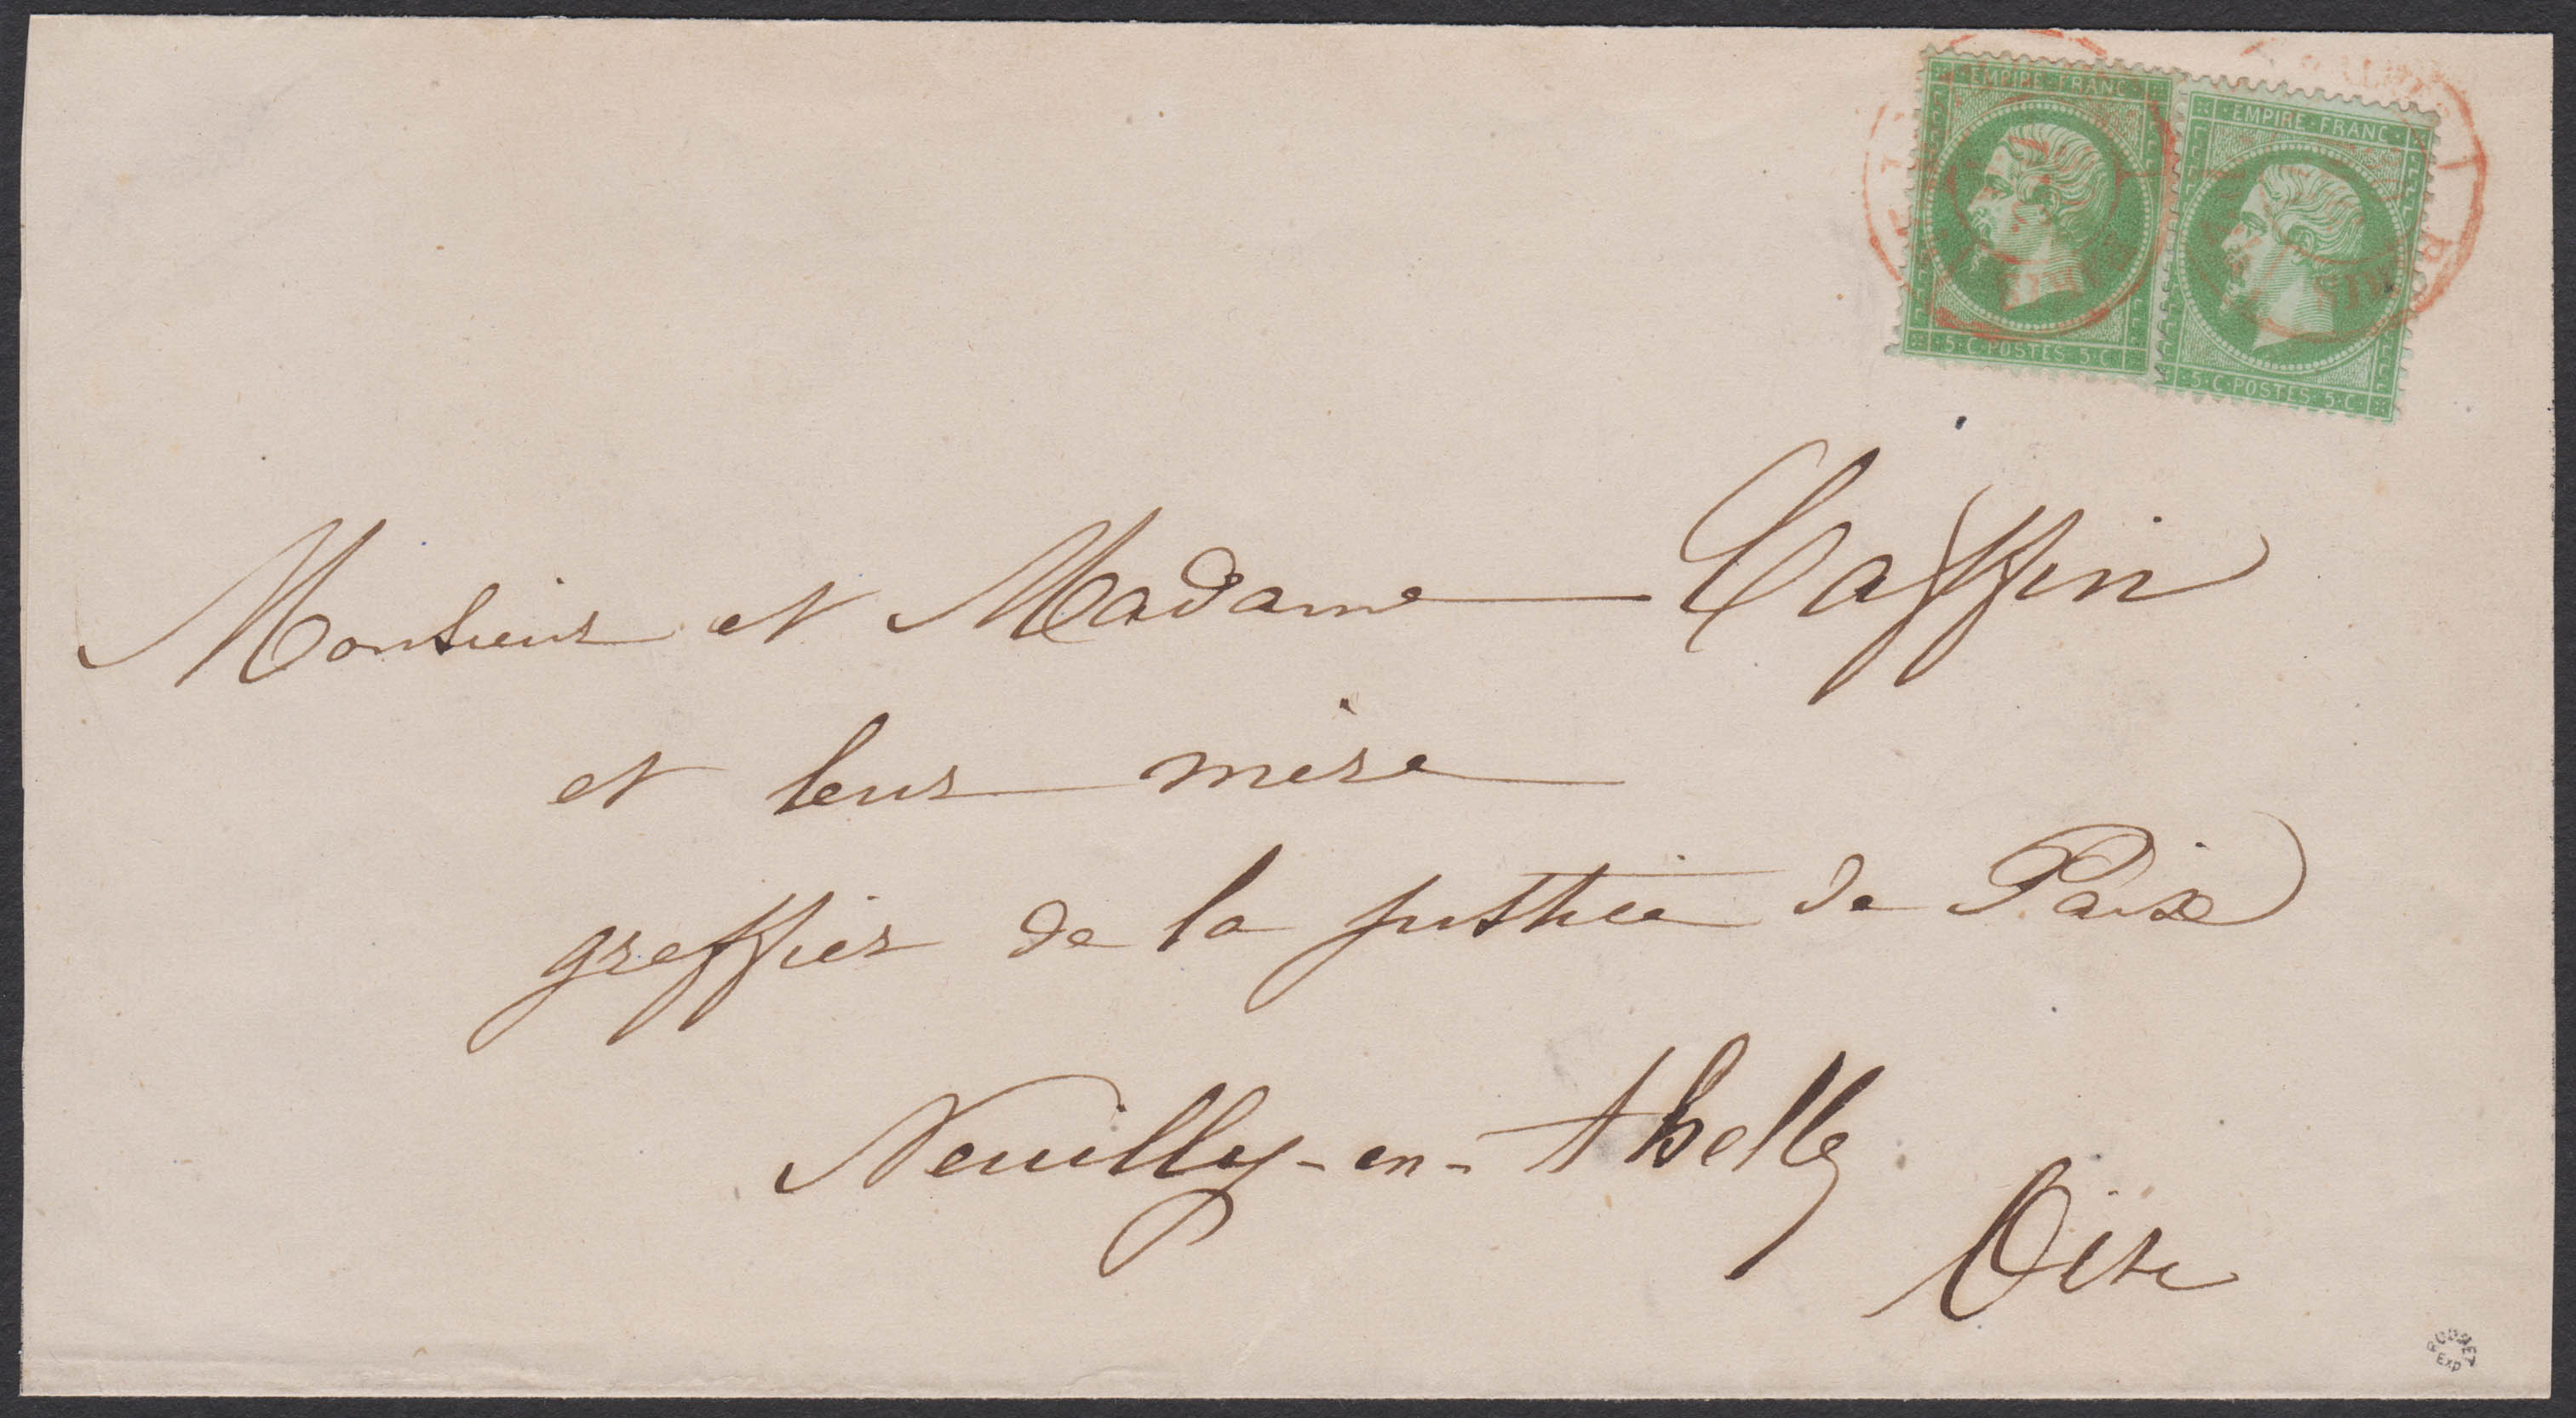 EMPIRE·FRANC·
5·C·POSTES·5·C
EMPIRE·FRANC·
5·C·POSTES·5·C
Monsieur et Madame Caffin
et leur mère
greffier de la justice de Paix
Neuilly-en-thelle
Oise
EXP